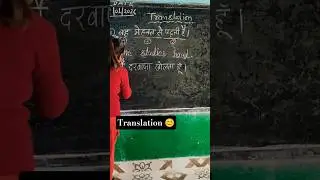 DATE
Translation
वह मेहनत से पढ़ती है।
studies hard.
दरवाजा खोलता हूँ।
Translation 😊